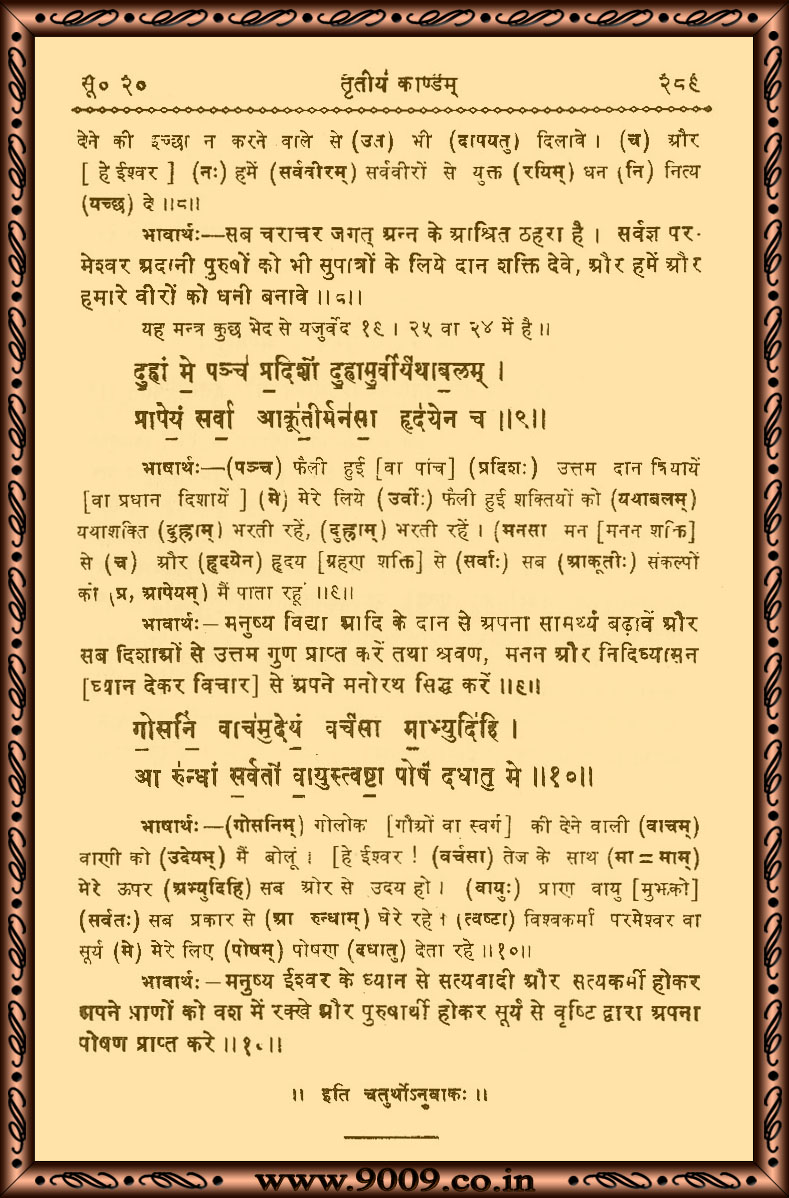 सू० २० तृतीयं काण्डम् २८९
देने की इच्छा न करने वाले से (उत) भी (दापयतु) दिलावे । (च) और
[ हे ईश्वर ] (नः) हमें (सर्ववीरम्) सर्ववीरों से युक्त (रयिम्) धन (नि) नित्य
(यच्छ) दे ॥८॥
भावार्थः—सब चराचर जगत् अन्न के आश्रित ठहरा है । सर्वज्ञ पर-
मेश्वर अदानी पुरुषों को भी सुपात्रों के लिये दान शक्ति देवे, और हमें और
हमारे वीरों को धनी बनावे ॥८॥
यह मन्त्र कुछ भेद से यजुर्वेद १९ । २५ वा २४ में है ॥
दु॒ह्रां मे॒ पञ्च॑ प्र॒दिशो॑ दु॒ह्रामु॒र्वीर्य॑थाब॒लम् ।
प्रापे॑यं॒ सर्वा॒ आकू॑ती॒र्मन॑सा॒ हृद॑येन च ॥९॥
भाषार्थः—(पञ्च) फैली हुई [वा पांच] (प्रदिशः) उत्तम दान क्रियायें
[वा प्रधान दिशायें ] (मे) मेरे लिये (उर्वीः) फैली हुई शक्तियों को (यथाबलम्)
यथाशक्ति (दुह्राम्) भरती रहें, (दुह्राम्) भरती रहें । (मनसा मन [मनन शक्ति]
से (च) और (हृदयेन) हृदय [ग्रहण शक्ति] से (सर्वाः) सब (आकूतीः) संकल्पों
को (प्र, आपेयम्) मैं पाता रहूं ॥९॥
भावार्थः—मनुष्य विद्या आदि के दान से अपना सामर्थ्य बढ़ावें और
सब दिशाओं से उत्तम गुण प्राप्त करें तथा श्रवण, मनन और निदिध्यासन
[ध्यान देकर विचार] से अपने मनोरथ सिद्ध करें ॥९॥
गो॒सनिं॒ वाच॑मुदेयं॒ वर्च॑सा मा॒भ्युदि॑हि ।
आ रु॑न्धां स॒र्वतो॑ वा॒युस्त्वष्टा॒ पोषं॑ दधातु मे ॥१०॥
भाषार्थः—(गोसनिम्) गोलोक [गौओं वा स्वर्ग] की देने वाली (वाचम्)
वाणी को (उदेयम्) मैं बोलूं । [हे ईश्वर ! (वर्चसा) तेज के साथ (मा = माम्)
मेरे ऊपर (अभ्युदिहि) सब ओर से उदय हो । (वायुः) प्राण वायु [मुझको]
(सर्वतः) सब प्रकार से (आ रुन्धाम्) घेरे रहे । (त्वष्टा) विश्वकर्मा परमेश्वर वा
सूर्य (मे) मेरे लिए (पोषम्) पोषण (दधातु) देता रहे ॥१०॥
भावार्थः—मनुष्य ईश्वर के ध्यान से सत्यवादी और सत्यकर्मी होकर
अपने प्राणों को वश में रक्खे और पुरुषार्थी होकर सूर्य से वृष्टि द्वारा अपना
पोषण प्राप्त करे ॥१०॥
॥ इति चतुर्थोऽनुवाकः ॥
www.9009.co.in